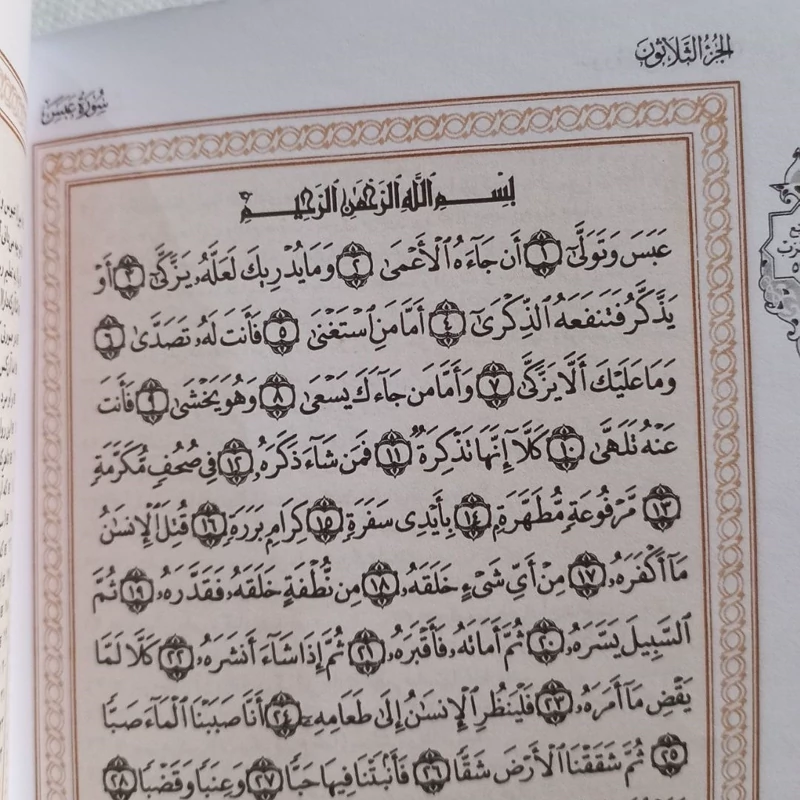 الجزء الثلاثون
سورة عبس
بِسْمِ اللَّهِ الرَّحْمَٰنِ الرَّحِيمِ
عَبَسَ وَتَوَلَّىٰٓ ١ أَن جَآءَهُ ٱلْأَعْمَىٰ ٢ وَمَا يُدْرِيكَ لَعَلَّهُۥ يَزَّكَّىٰٓ ٣ أَوْ
يَذَّكَّرُ فَتَنفَعَهُ ٱلذِّكْرَىٰٓ ٤ أَمَّا مَنِ ٱسْتَغْنَىٰ ٥ فَأَنتَ لَهُۥ تَصَدَّىٰ ٦
وَمَا عَلَيْكَ أَلَّا يَزَّكَّىٰ ٧ وَأَمَّا مَن جَآءَكَ يَسْعَىٰ ٨ وَهُوَ يَخْشَىٰ ٩ فَأَنتَ
عَنْهُ تَلَهَّىٰ ١٠ كَلَّآ إِنَّهَا تَذْكِرَةٌ ١١ فَمَن شَآءَ ذَكَرَهُۥ ١٢ فِى صُحُفٍ مُّكَرَّمَةٍ
١٣ مَّرْفُوعَةٍ مُّطَهَّرَةٍۭ ١٤ بِأَيْدِى سَفَرَةٍ ١٥ كِرَامٍۭ بَرَرَةٍ ١٦ قُتِلَ ٱلْإِنسَٰنُ
مَآ أَكْفَرَهُۥ ١٧ مِنْ أَىِّ شَىْءٍ خَلَقَهُۥ ١٨ مِن نُّطْفَةٍ خَلَقَهُۥ فَقَدَّرَهُۥ ١٩ ثُمَّ
ٱلسَّبِيلَ يَسَّرَهُۥ ٢٠ ثُمَّ أَمَاتَهُۥ فَأَقْبَرَهُۥ ٢١ ثُمَّ إِذَا شَآءَ أَنشَرَهُۥ ٢٢ كَلَّا لَمَّا
يَقْضِ مَآ أَمَرَهُۥ ٢٣ فَلْيَنظُرِ ٱلْإِنسَٰنُ إِلَىٰ طَعَامِهِۦٓ ٢٤ أَنَّا صَبَبْنَا ٱلْمَآءَ صَبًّا
٢٥ ثُمَّ شَقَقْنَا ٱلْأَرْضَ شَقًّا ٢٦ فَأَنۢبَتْنَا فِيهَا حَبًّا ٢٧ وَعِنَبًا وَقَضْبًا ٢٨